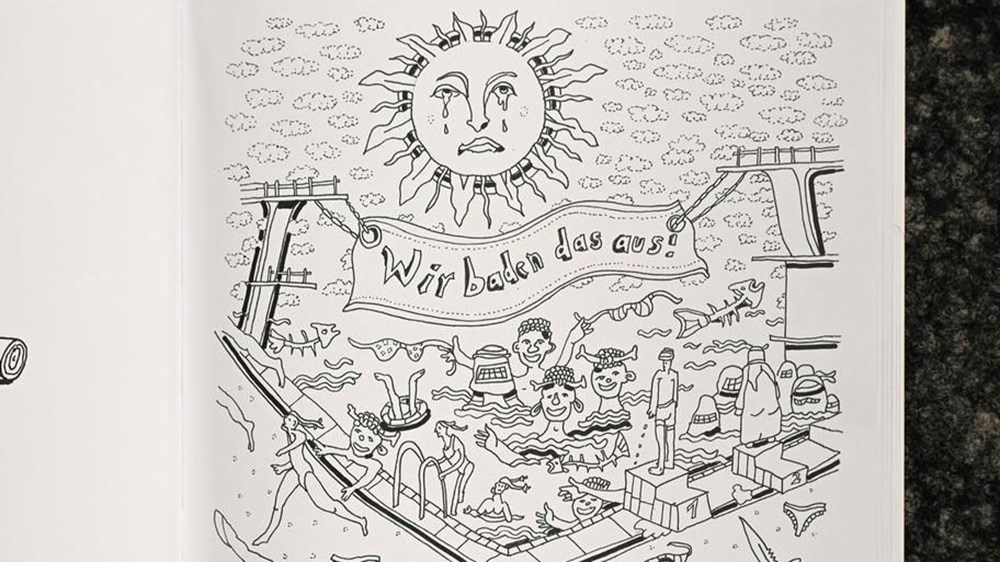 Wir baden das aus!
1
2